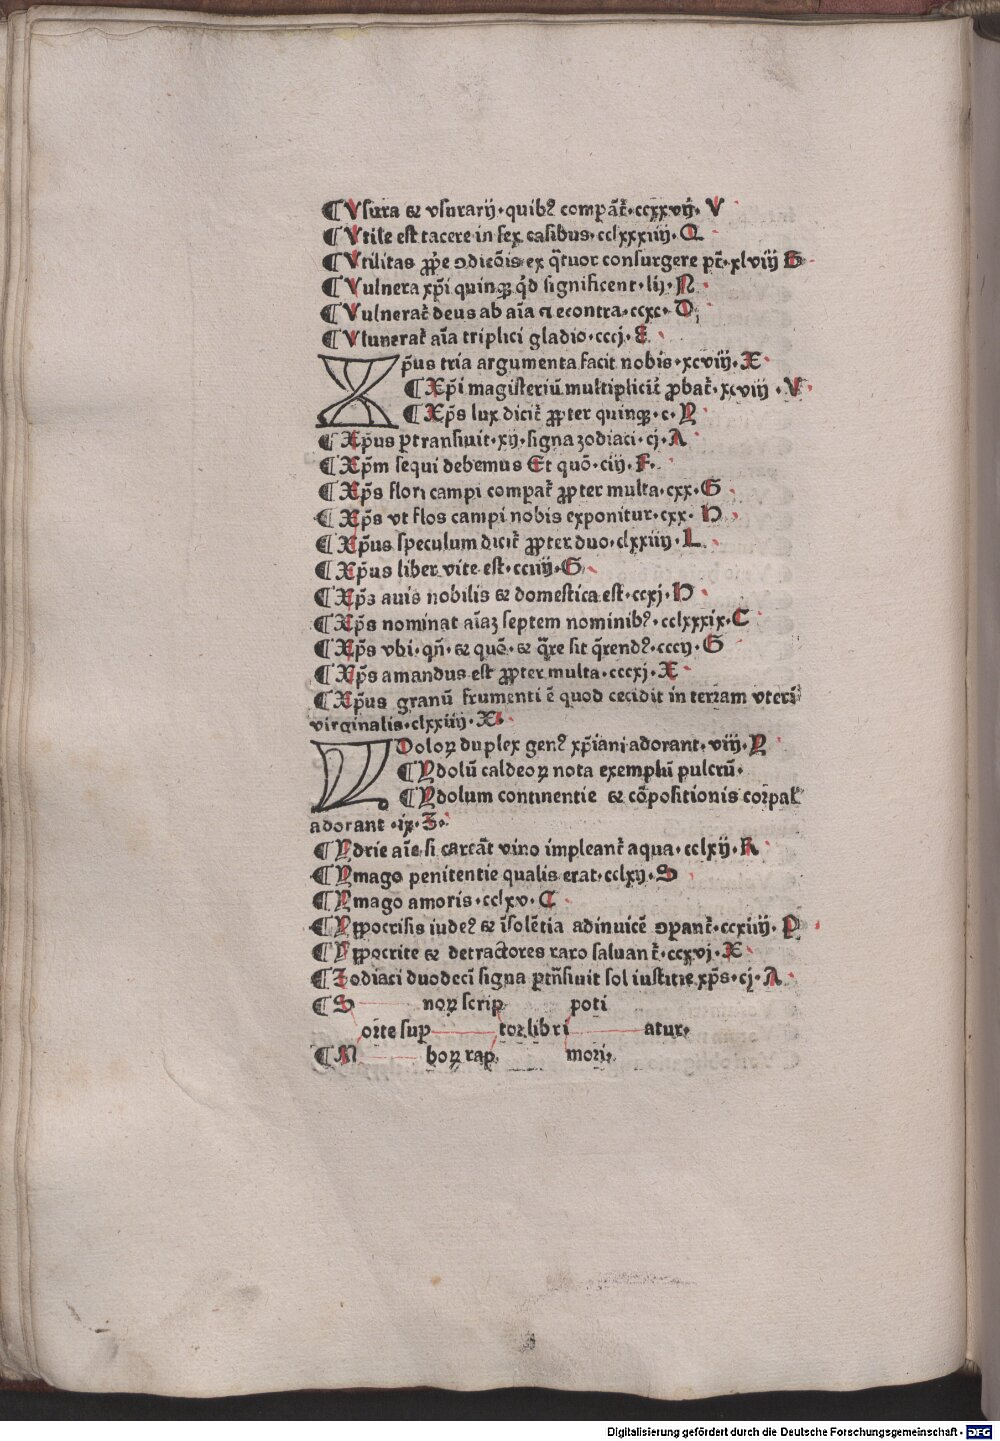 ¶ Vsura ⁊ vsurarij·quibꝰ compāt̄·ccxxvij·V
¶ Vtile est tacere in sex casibus·cclxxxiiij·Q
¶ Vtilitas ꝓṗe ꝯdicōis ex q̄tuor consurgere pt̄·xlviij S
¶ Vulnera xp̄i quinqꝫ qd̄ significent·lij·N
¶ Vulnerat̄ deus ab aīa ⁊ econtra·ccxc·O
¶ Vlunerat̄ aīa triplici gladio·cccj·E
Xp̄us tria argumenta facit nobis·xcviij·X
¶ Xp̄i magisteriū multiplicit̄ ꝓbat̄·xcviij·V
¶ Xp̄s lux dicit̄ ꝓpter quinqꝫ·c·Y
¶ Xp̄us ꝑtransiuit·xij·signa zodiaci·cj·A
¶ Xp̄m sequi debemus Et quō·ciij·F·
¶ Xp̄s flori campi compat̄ ꝓpter multa·cxx·G
¶ Xp̄s vt flos campi nobis exponitur·cxx·H
¶ Xp̄us speculum dicit̄ ꝓpter duo·clxxiiij·L
¶ Xp̄us liber vite est·cciiij·G
¶ Xp̄s auis nobilis ⁊ domestica est·ccxj·H
¶ Xp̄s nominat aīaꝫ septem nominibꝰ·cclxxxix·C
¶ Xp̄s vbi·qn̄·⁊ quō·⁊ q̄re sit q̄rendꝰ·cccij·G
¶ Xp̄s amandus est ꝓpter multa·cccxj·X
¶ Xp̄us granū frumenti ē quod cecidit in terram vteri
virginalis·clxxiiij·X·
YDoloꝝ duplex genꝰ xp̄iani adorant·viij·Y
¶ Ydolū caldeoꝝ nota exemplū pulcrū·
¶ Ydolum continentie ⁊ cōpositionis corpal̄
adorant·ix·Z·
¶ Ydrie aīe si carcāt vino impleant̄ aqua·cclxij·R
¶ Ymago penitentie qualis erat·cclxij·S
¶ Ymago amoris·cclxv·C
¶ Yppocrisis iudeꝰ ⁊ īsolētia adinuicē ꝯpant̄·ccxiiij·P
¶ Yppocrite ⁊ detractores raro saluant̄·ccxvj·X
¶ Zodiaci duodecī signa ꝑtn̄siuit sol iustitie xp̄s·cj·A
¶ S noꝝ scrip poti
orte sup tor libri atur·
¶ M boꝝ rap mori·
Digitalisierung gefördert durch die Deutsche Forschungsgemeinschaft - DFG